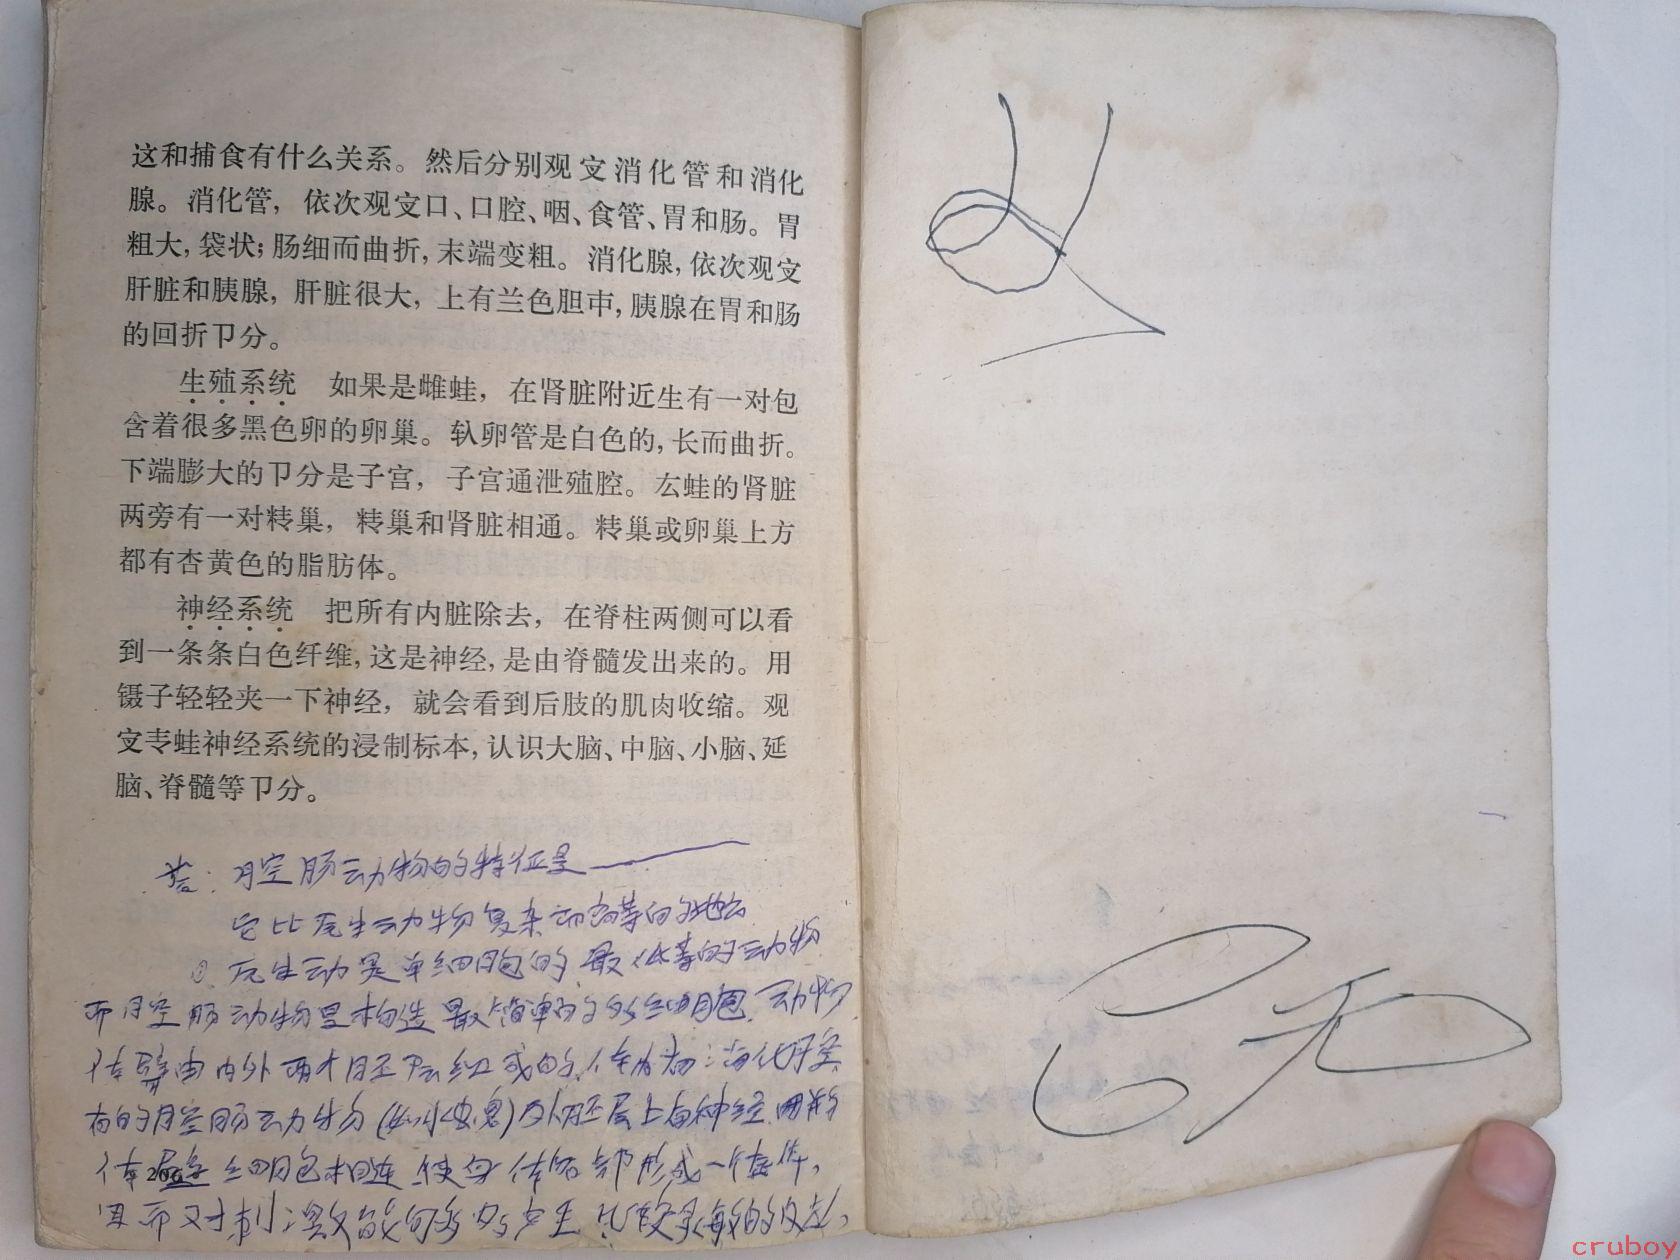 这和捕食有什么关系。然后分别观㝉消化管和消化
腺。消化管，依次观㝉口、口腔、咽、食管、胃和肠。胃
粗大，袋状；肠细而曲折，末端变粗。消化腺，依次观㝉
肝脏和胰腺，肝脏很大，上有兰色胆㠯，胰腺在胃和肠
的回折卩分。
生殖系统 如果是雌蛙，在肾脏附近生有一对包
含着很多黑色卵的卵巢。卵管是白色的，长而曲折。
下端膨大的卩分是子宫，子宫通泄殖腔。厷蛙的肾脏
两旁有一对巢，巢和肾脏相通。巢或卵巢上方
都有杏黄色的脂肪体。
神经系统 把所有内脏除去，在脊柱两侧可以看
到一条条白色纤维，这是神经，是由脊髓发出来的。用
镊子轻轻夹一下神经，就会看到后肢的肌肉收缩。观
蛙神经系统的浸制标本，认识大脑、中脑、小脑、延
脑、脊髓等卩分。
答：腔肠动物的特征是——
它比原生动物复杂而高等的
① 原生动是单细胞的最低等的动物
而腔肠动物是构造最简单的多细胞动物
体壁由内外两个胚层组成的，体内有消化腔
有的腔肠动物（如水螅）胚层上有神经
206
体 细胞相连 使身体 形成一个整体，
因而对刺激能 产生比较灵敏的反应，
cruboy